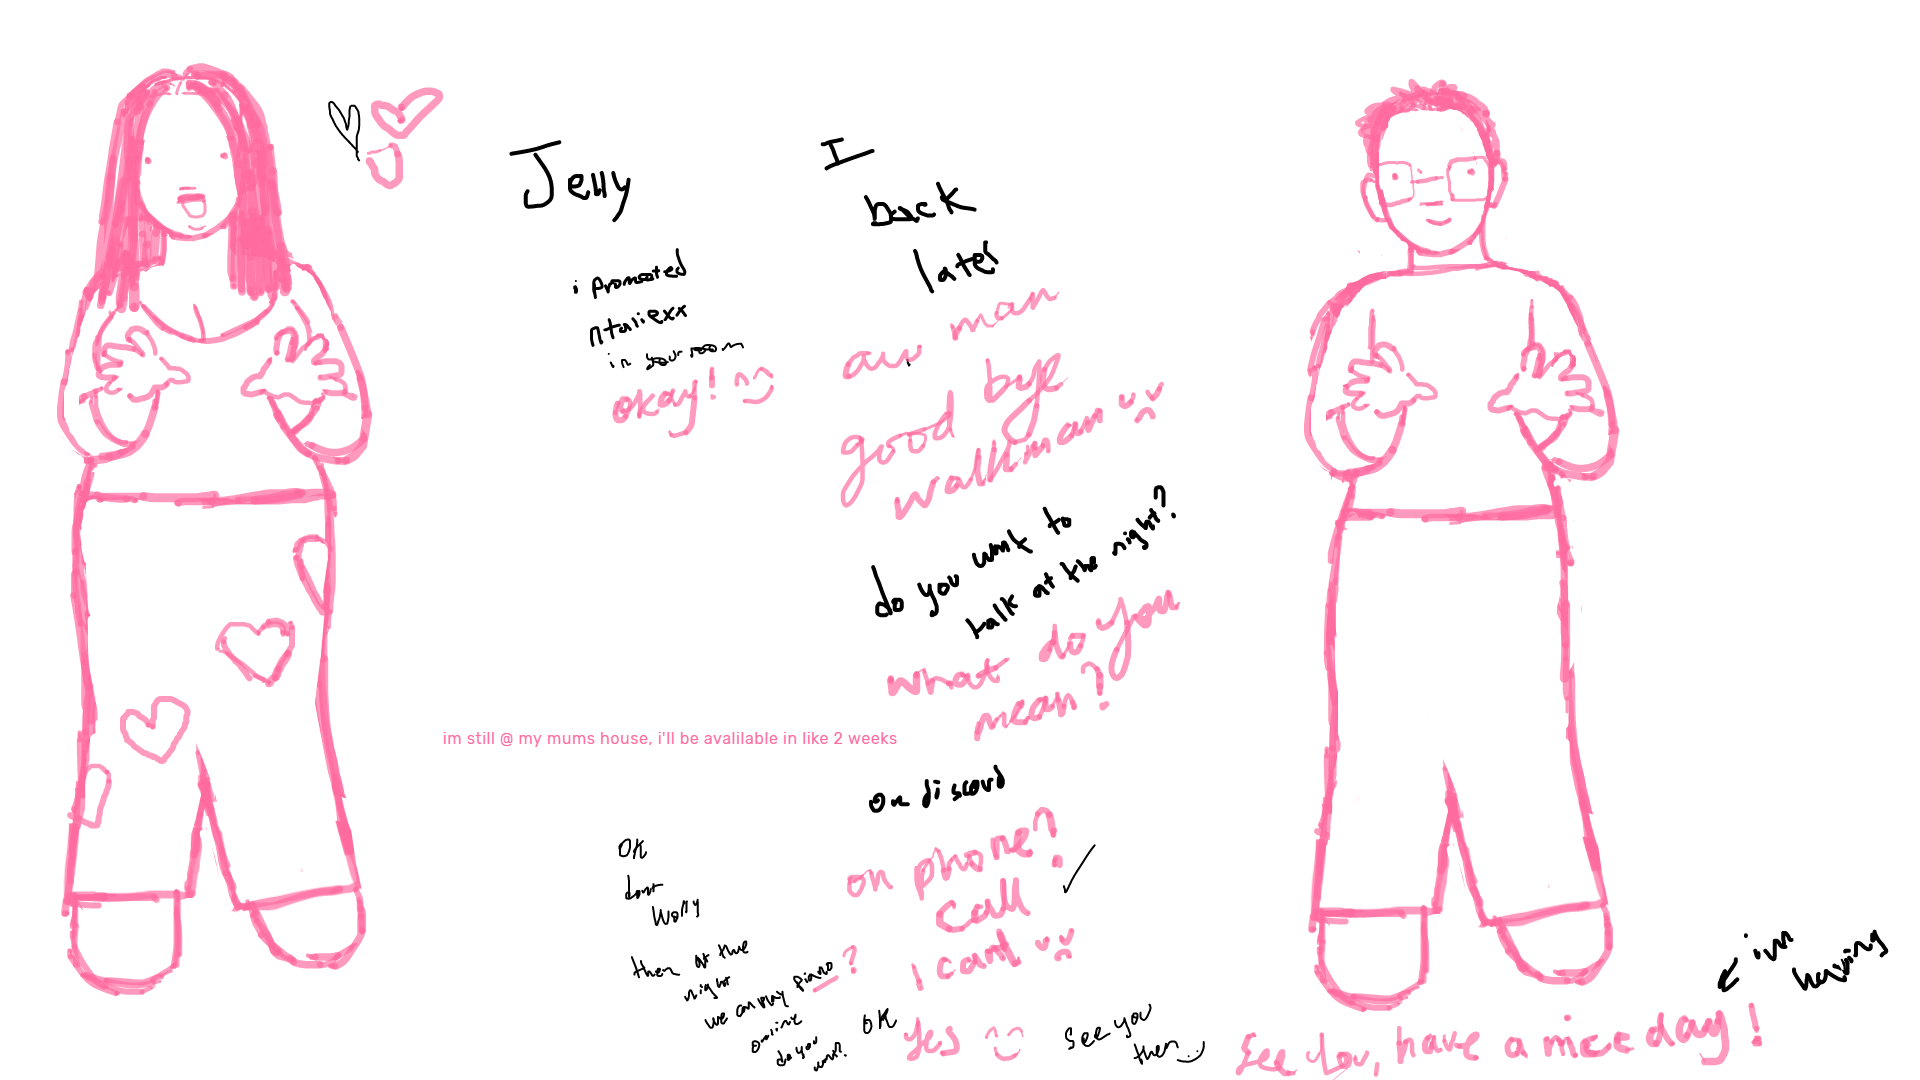 Jelly
i promoted
ntaliexx
in your room
okay!
I
back
later
aw man
good bye
walkman
do you want to
talk at the night?
what do you
mean?
im still @ my mums house, i'll be avalilable in like 2 weeks
on discord
on phone?
call
I cant
OK
dont
worry
then at the
night
we can play piano ?
online
do you
want?
OK
Yes
See you
then
See you, have a nice day!
im
having